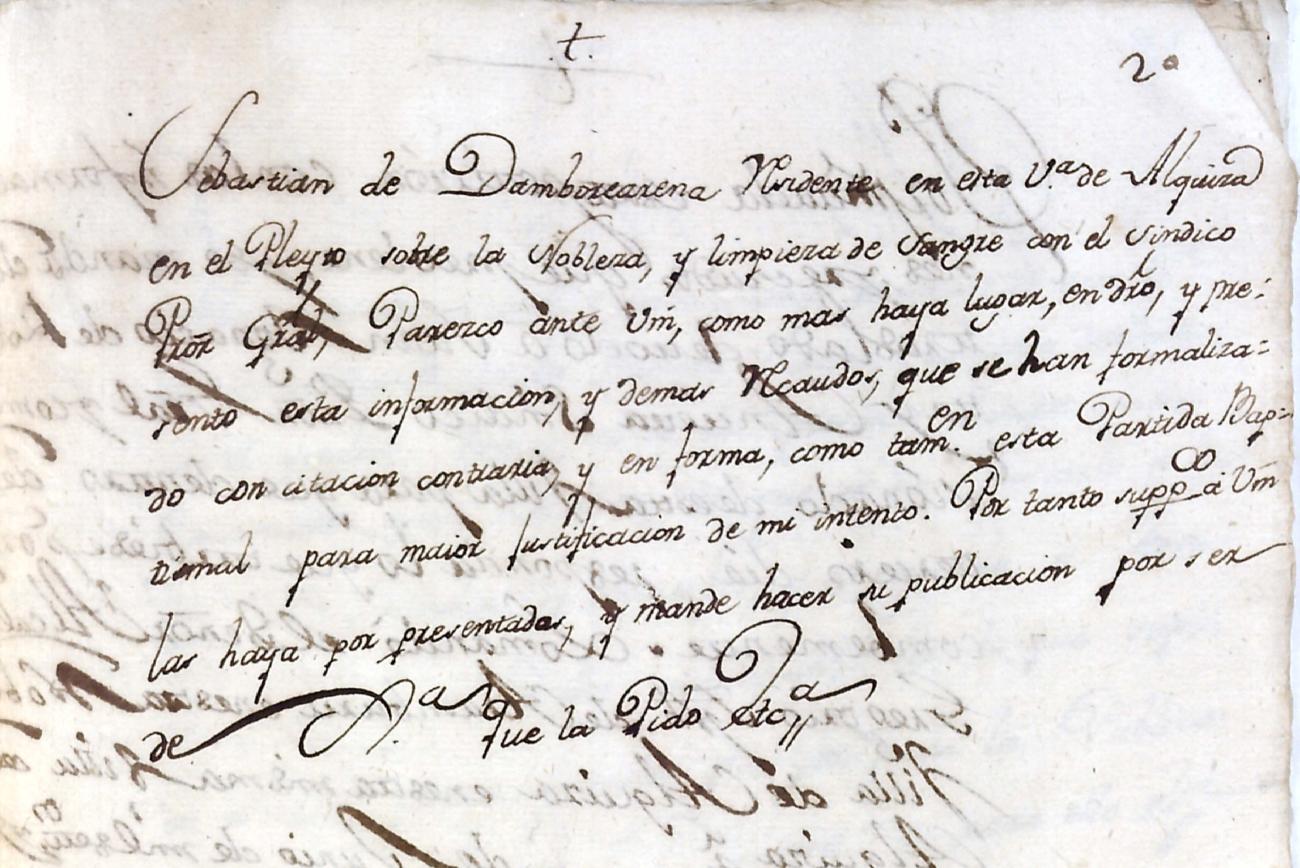 .t.
2º
Sebastian de Damborearena Residente en esta V.ª de Alquiza
en el Pleyto sobre la Nobleza, y limpieza de Sangre con el Sindico
Pror̃ Gral, Parezco ante Vm̃, como mas haya lugar, en dr̃o, y pre-
sento esta informacion, y demas Recaudos, que se han formaliza=
do con citacion contraria, y en forma, como tam.en esta Partida Bap-
tismal para maior Justificacion de mi intento. Por tanto supp.co a Vm̃
las haya por presentadas, y mande hacer su publicacion por ser
de J.ª que la Pido etc.ª